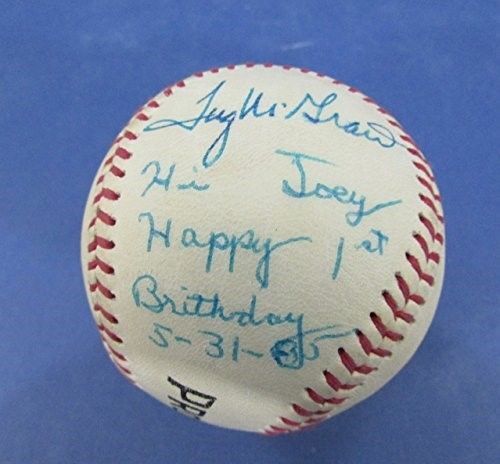 Tug McGraw
Hi Joey
Happy 1st
Brithday
5-31-85
PR